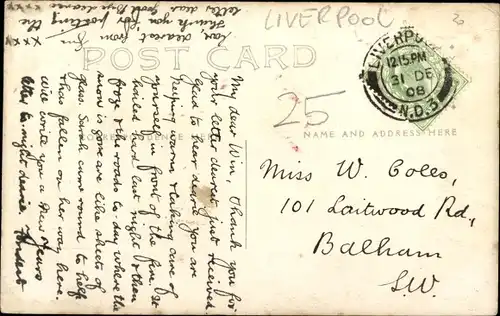 LIVERPOOL
POST CARD
LIVERPOOL
12.15 PM
31 DE
08
N.D.3
25
NAME AND ADDRESS HERE
Miss W. Coles,
101 Laitwood Rd.,
Balham
S.W.
My dear Win, Thank you for
your letter dearest, just received.
Glad to hear dear you are
keeping warm & taking care of
yourself in front of the fire. It
hailed hard last night & then
froze & the roads to-day where the
snow is gone are like sheets of
glass. Sarah came round to help
& has fallen on her way here.
Will write you a New Years
letter to-night dearie.
letter dear. Good bye dearie
Thank you for posting the
love, dearest, from
xxxx
xxxx